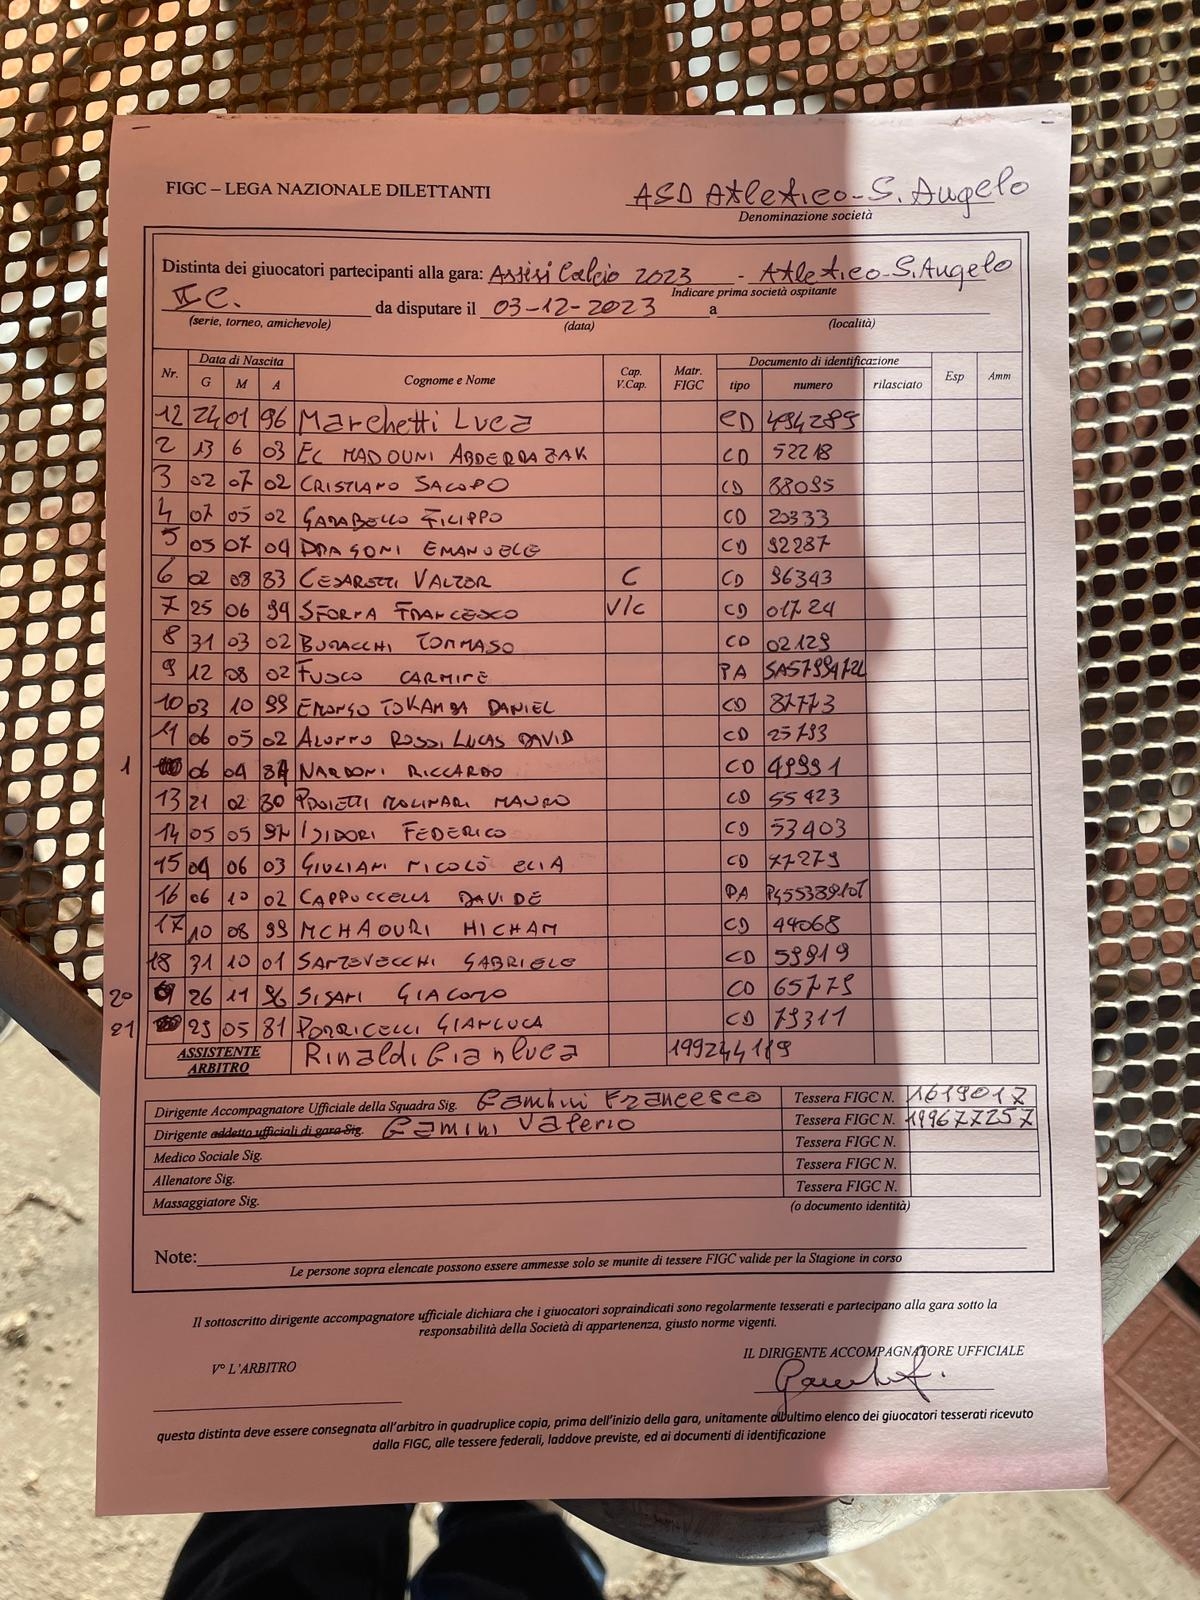 FIGC – LEGA NAZIONALE DILETTANTI
ASD Atletico-S. Angelo
Denominazione società
Distinta dei giuocatori partecipanti alla gara: Assisi Calcio 2023 - Atletico-S. Angelo
Indicare prima società ospitante
II C. da disputare il 03-12-2023 a
(serie, torneo, amichevole) (data) (località)
Nr. Data di Nascita Cognome e Nome Cap. V.Cap. Matr. FIGC Documento di identificazione Esp Amm
G M A tipo numero rilasciato
12 24 01 96 Marchetti Luca CD 494289
2 13 6 03 EL MADOUNI ABDERRAZAK CD 52218
3 02 07 02 CRISTIANO SACOPO CD 88095
4 07 05 02 GARABELLO FILIPPO CD 20333
5 05 07 04 DRAGONI EMANUELE CD 92287
6 02 08 83 CESARETTI VALTER C CD 96343
7 25 06 94 SFORNA FRANCESCO V/C CD 01724
8 31 03 02 BURACCHI TOMMASO CD 02129
9 12 08 02 FUSCO CARMINE PA
10 03 10 99 EMONGO TOKAMBA DANIEL CD 87773
11 06 05 02 ALUNNO ROSSI LUCAS DAVID CD 25793
1 06 04 87 NARDONI RICCARDO CD 49991
13 21 02 90 PROIETTI MOLINARI MAURO CD 55423
14 05 05 97 ISIDORI FEDERICO CD 53403
15 04 06 03 GIULIANI NICOLÒ ELIA CD 77279
16 06 10 02 CAPPUCCELLA DAVIDE PA
17 10 08 99 MCHAOURI HICHAM CD 44068
18 31 10 01 SANTEVECCHI GABRIELE CD 59919
20 26 11 96 SISANI GIACOMO CD 65779
21 29 05 81 PORRICELLI GIANLUCA CD 79311
ASSISTENTE ARBITRO Rinaldi Gianluca 199244119
Dirigente Accompagnatore Ufficiale della Squadra Sig. Gambini Francesco Tessera FIGC N. 1619017
Dirigente addetto ufficiali di gara Sig. Gamini Valerio Tessera FIGC N. 199677257
Medico Sociale Sig. Tessera FIGC N.
Allenatore Sig. Tessera FIGC N.
Massaggiatore Sig. Tessera FIGC N.
(o documento identità)
Note:
Le persone sopra elencate possono essere ammesse solo se munite di tessere FIGC valide per la Stagione in corso
Il sottoscritto dirigente accompagnatore ufficiale dichiara che i giuocatori sopraindicati sono regolarmente tesserati e partecipano alla gara sotto la
responsabilità della Società di appartenenza, giusto norme vigenti.
V° L'ARBITRO
IL DIRIGENTE ACCOMPAGNATORE UFFICIALE
questa distinta deve essere consegnata all'arbitro in quadruplice copia, prima dell'inizio della gara, unitamente all'ultimo elenco dei giuocatori tesserati ricevuto
dalla FIGC, alle tessere federali, laddove previste, ed ai documenti di identificazione